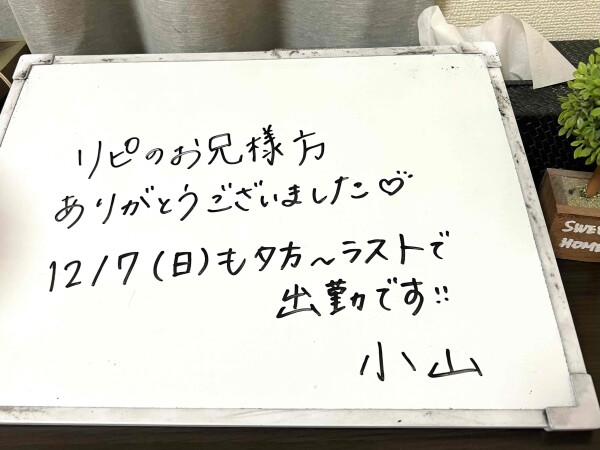 リピのお兄様方
ありがとうございました♡
12/7(日)も夕方~ラストで
出勤です!!
小山
SWEE
HOME